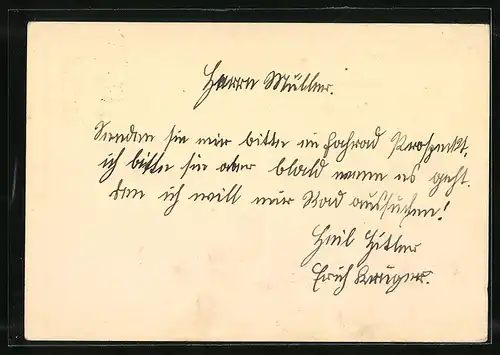 Herrn Müller.
Senden sie mir bitte im Fahrad Prospeckt,
ich bitte sie aber blald wenn es geht.
den ich will mir Rad aussuchen!
Heil Hitler
Erich Krüger.